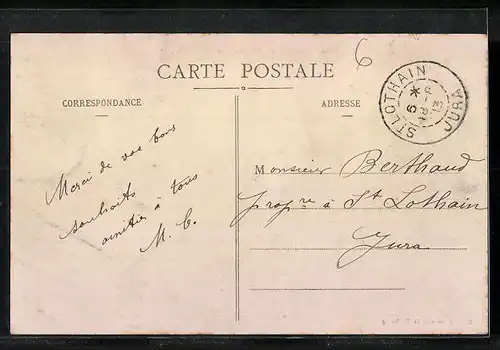 6
CARTE POSTALE
CORRESPONDANCE
ADRESSE
ST LOTHAIN
JURA
Merci de vos bons
souhaits
amitiés à tous
M. C.
Monsieur Berthaud
prop.re à St Lothain
Jura